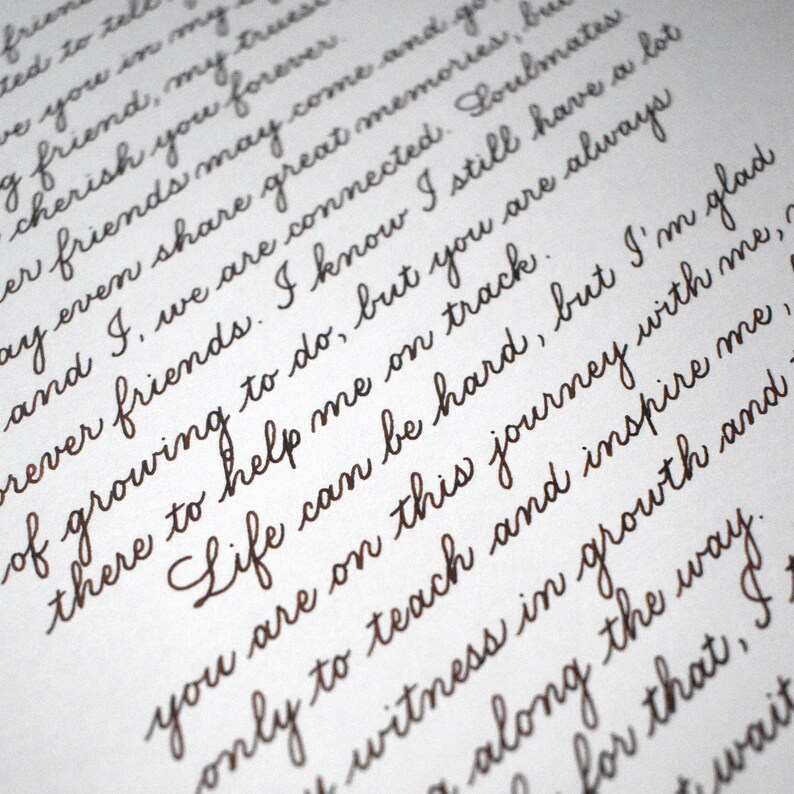 friend
to tell
you in my
friend, my truest
cherish you forever.
friends may come and go,
even share great memories, but
and I, we are connected. Soulmates
forever friends. I know I still have a lot
of growing to do, but you are always
there to help me on track.
Life can be hard, but I'm glad
you are on this journey with me,
only to teach and inspire me,
witness in growth and
along the way.
for that, I
wait